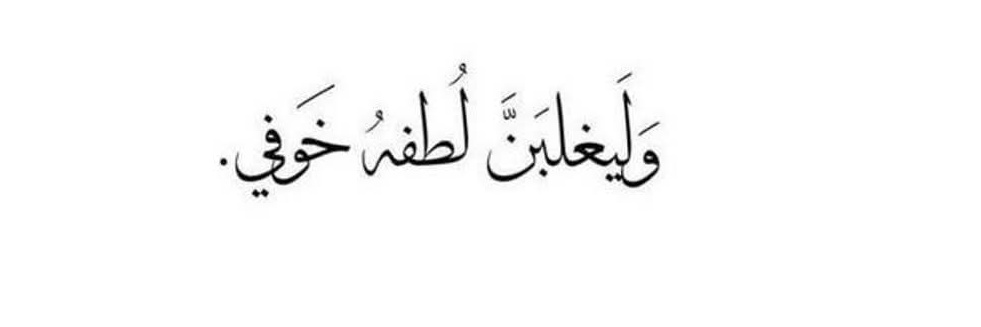 وَلَيغلبَنَّ لُطفهُ خَوفي.